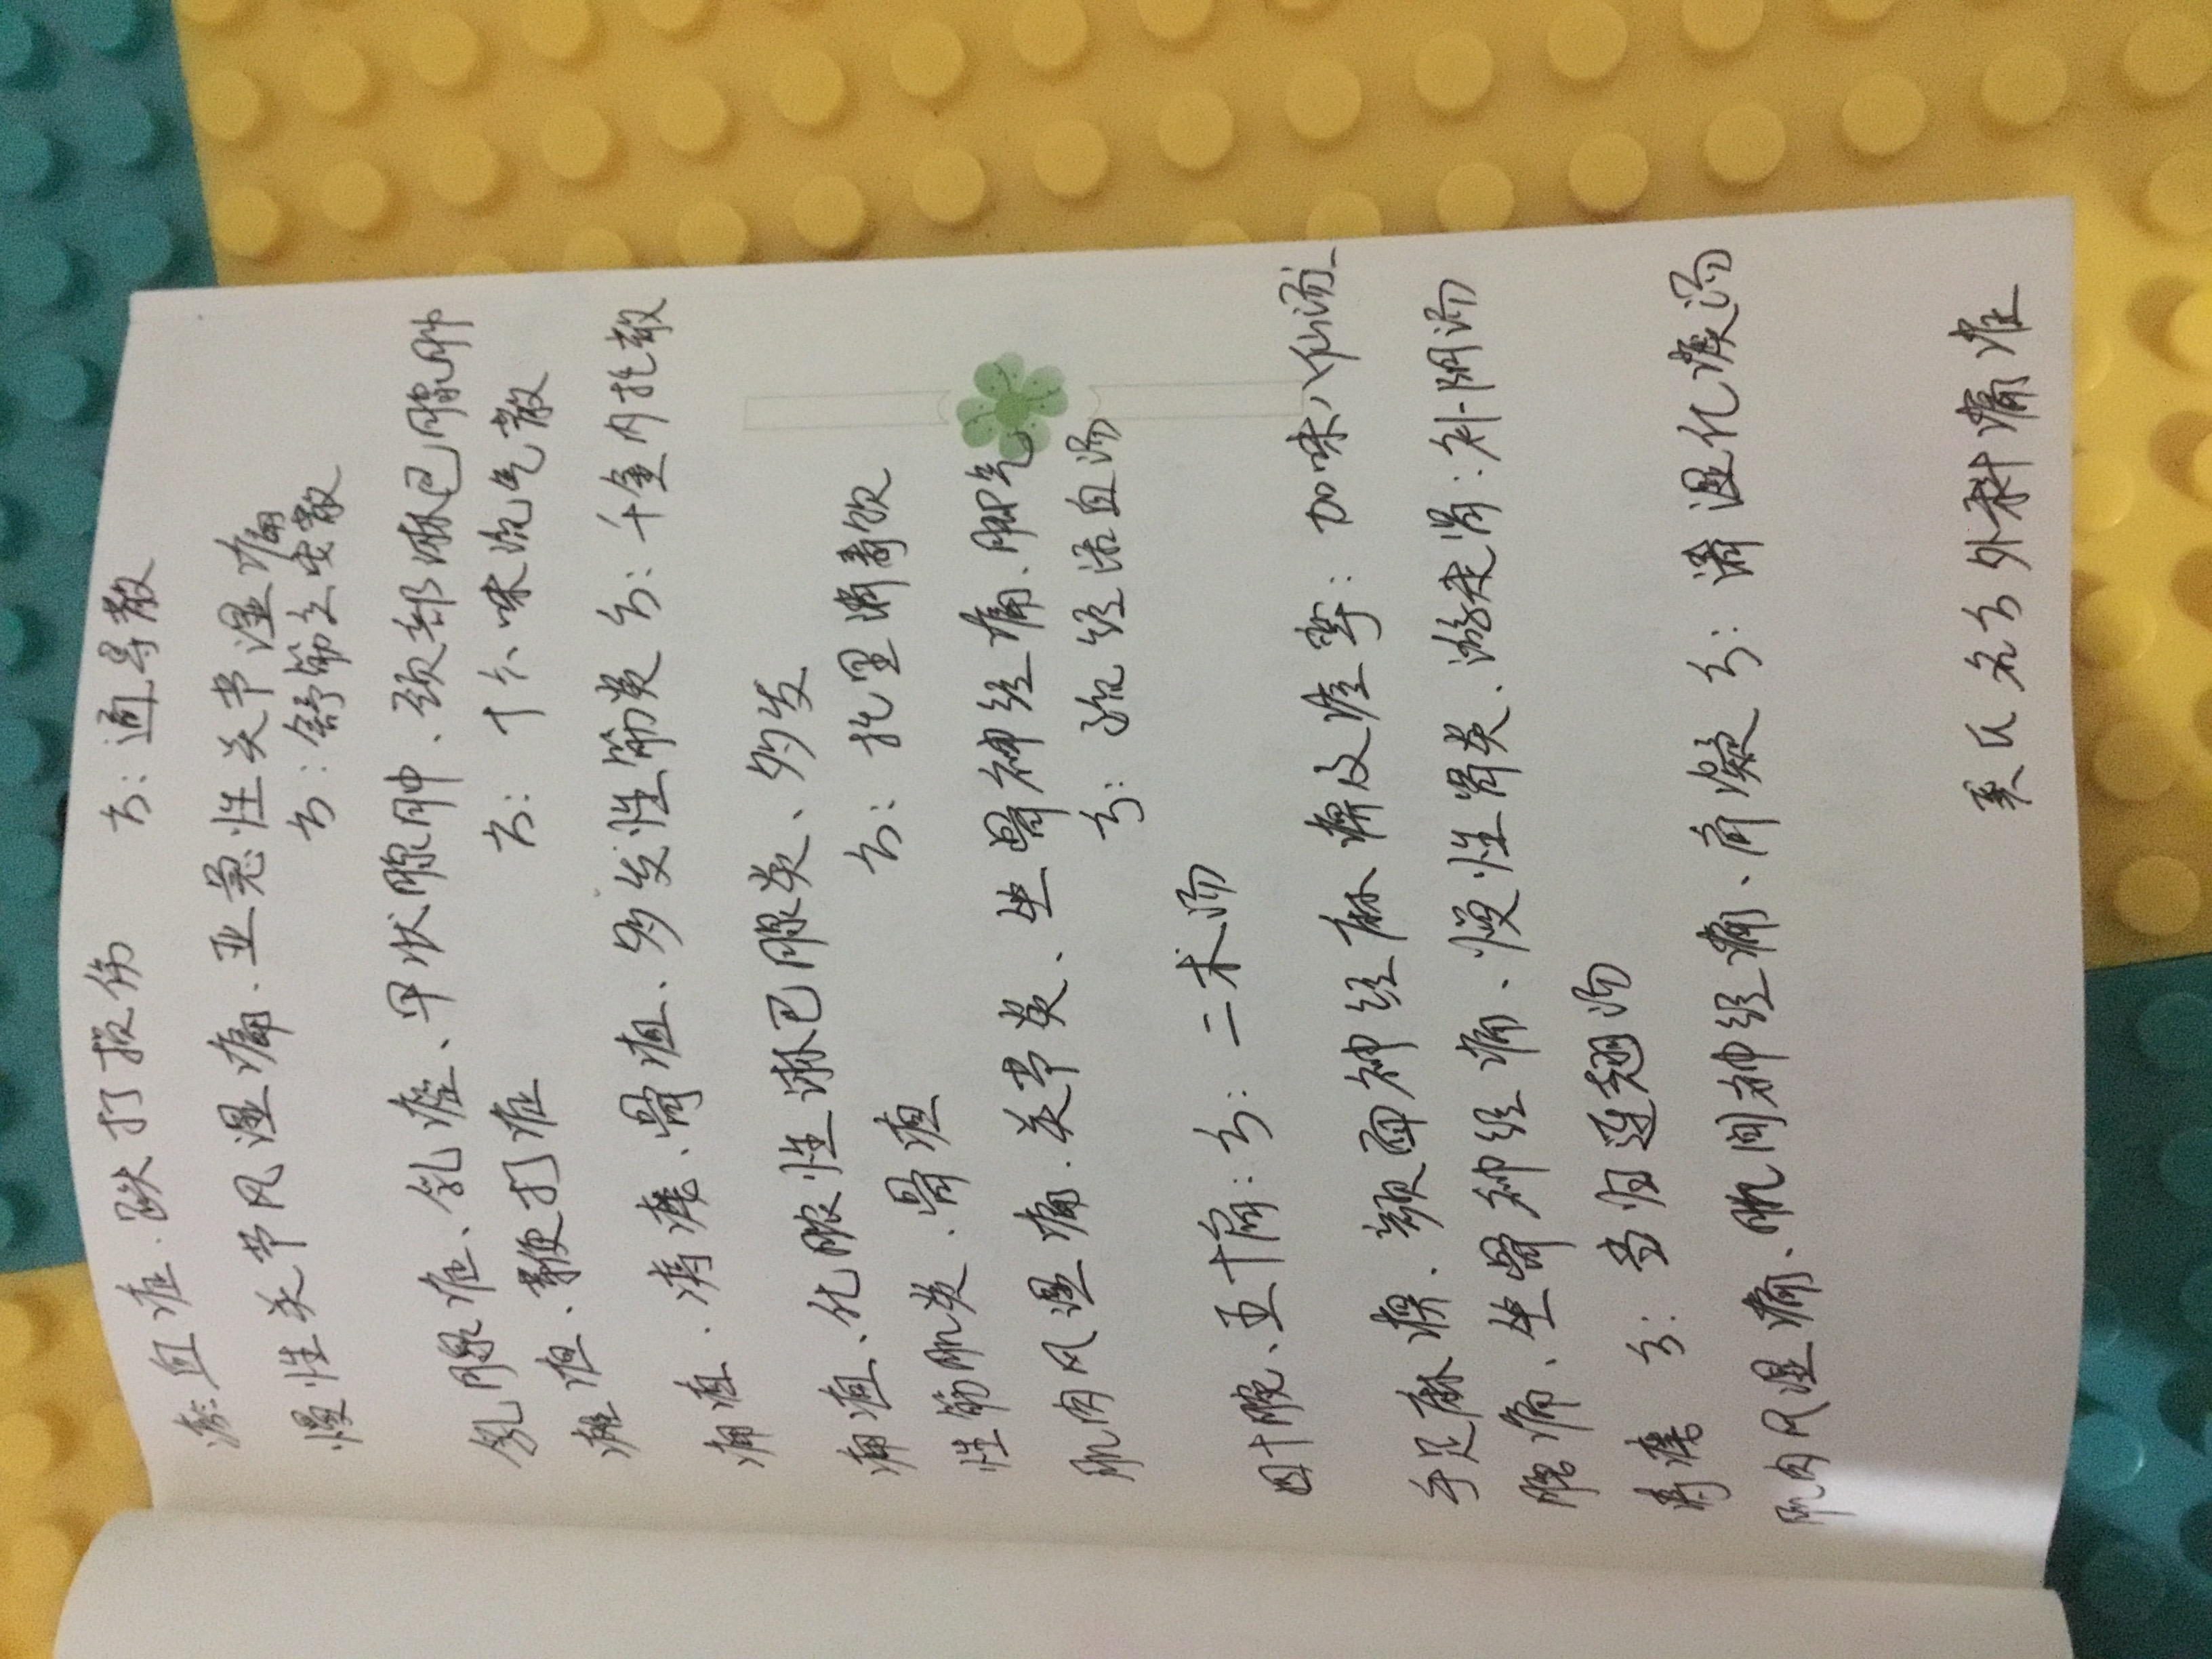 瘀血症、跌打损伤 方：通导散
慢性关节风湿痛、亚急性关节湿痛
方：舒筋立安散
乳腺症、乳癌、甲状腺肿、颈部淋巴腺肿
方：十六味流气散
疽、鞭打症
痈疽、疡、骨疽、多发性筋炎 方：千金内托散
痈疽、化脓性淋巴腺炎、多发
方：托里消毒饮
性筋肌炎、骨疽
肌肉风湿痛、关节炎、坐骨神经痛、脚气
方：疏经活血汤
四十腕、五十肩：方：二术汤
手足麻痹、颜面神经麻痹及痉挛：加味八仙汤
腕痛、坐骨神经痛、慢性胃炎、游走肾：补阴汤
方：当归连翘汤
肌肉风湿痛、肌间神经痛、肩凝 方：清湿化痰汤
吴氏名方外科痛症